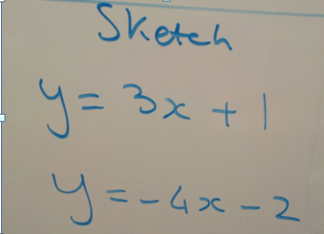 Sketch
y = 3x + 1
y = -4x - 2